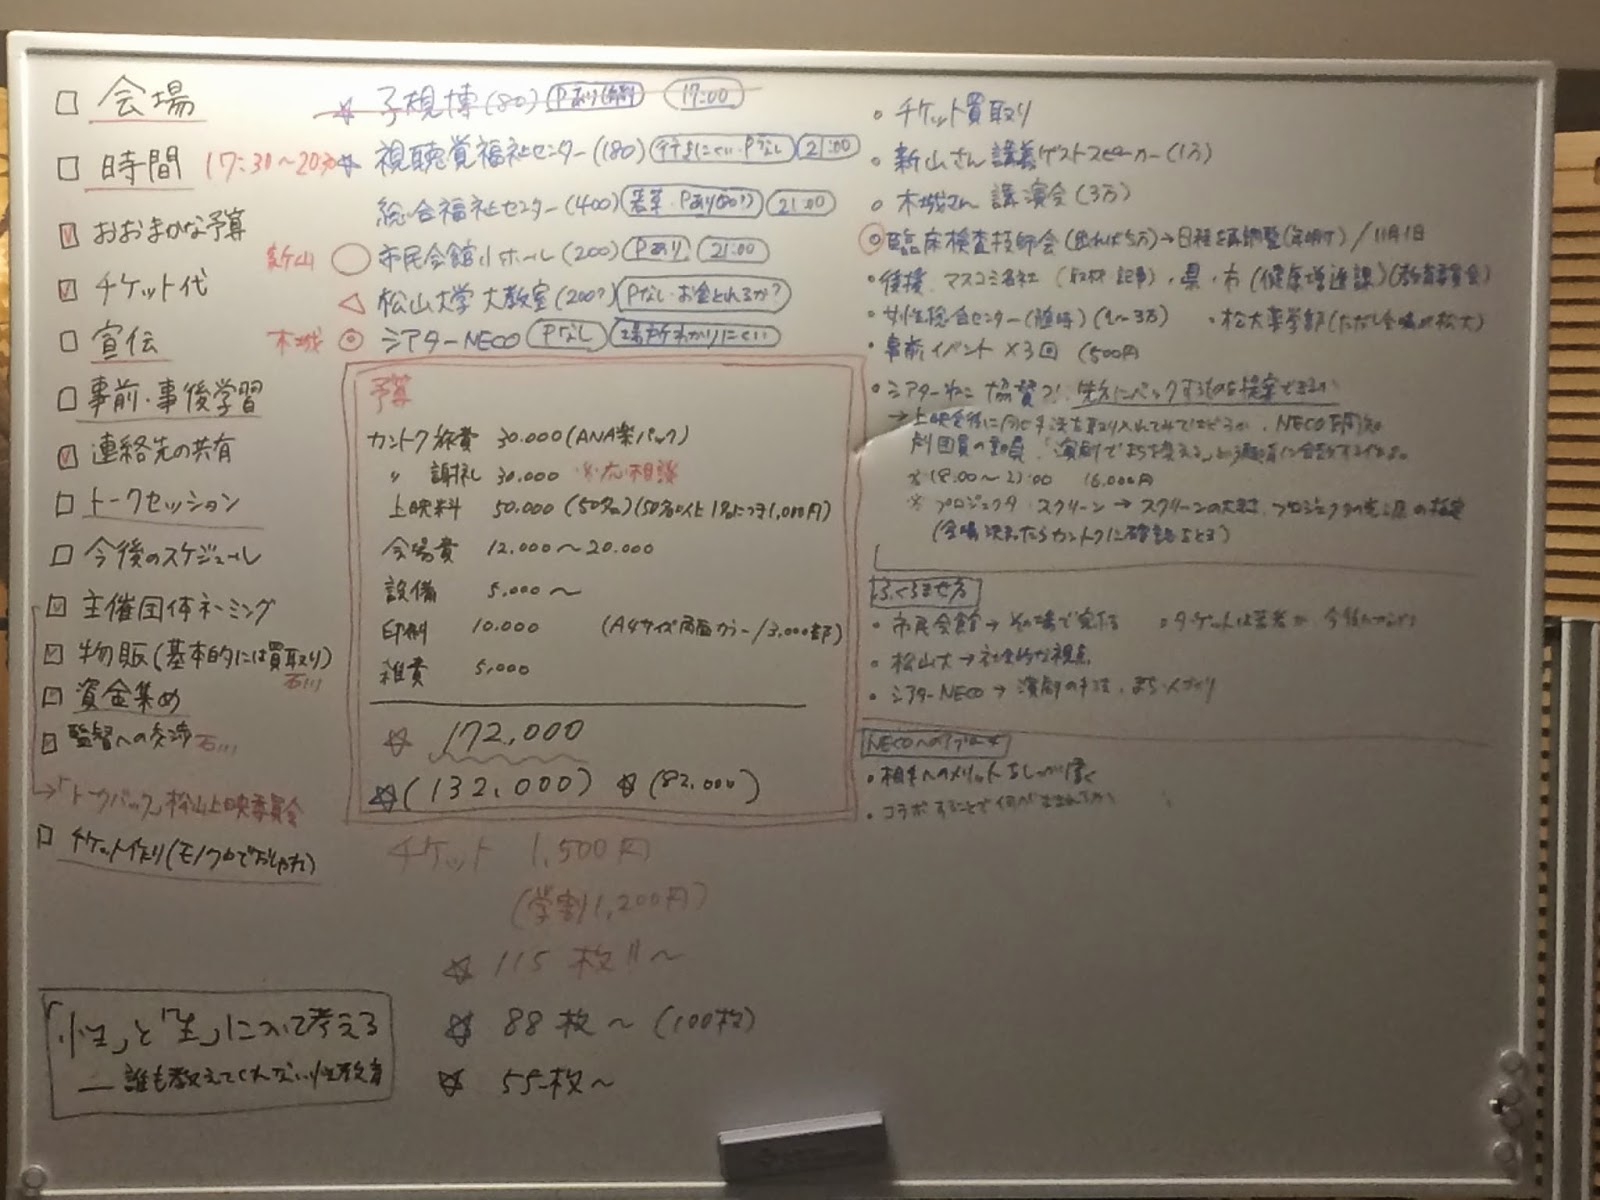 会場
時間 17:30〜20:30
おおまかな予算
チケット代
宣伝
事前・事後学習
連絡先の共有
トークセッション
今後のスケジュール
主催団体ネーミング
物販(基本的には買取り)
石川
資金集め
監督への交渉 石川
→「トークバック」松山上映委員会
チケット作り(モノクロでおしゃれ)
「性」と「生」について考える
― 誰も教えてくれない性教育
☆ 子規博(80) Pあり 17:00
☆ 視聴覚福祉センター(180) 行きにくい・Pなし 21:00
総合福祉センター(400) 若草・Pあり 21:00
新山 ○ 市民会館小ホール(200) Pあり 21:00
△ 松山大学 大教室(200?) Pなし・お金とれるか?
木城 ◎ シアターNECO Pなし 場所わかりにくい
予算
カントク旅費 30.000(ANA楽パック)
〃 謝礼 30.000 ※応相談
上映料 50.000(50名)(50名以上1名につき1,000円)
会場費 12.000〜20.000
設備 5.000〜
印刷 10.000 (A4サイズ両面カラー/3,000部)
雑費 5,000
☆ 172,000
☆(132,000) ☆(82,000)
チケット 1,500円
(学割1,200円)
☆ 115枚!!〜
☆ 88枚〜(100枚)
☆ 55枚〜
・チケット買取り
・新山さん 講義ゲストスピーカー(1万)
・木城さん 講演会(3万)
◎臨床検査技師会(出れば5万)→日程を再調整(年明け)/11月1日
・後援 マスコミ各社(取材 記事)・県・市(健康増進課)(教育委員会)
・女性総合センター(2〜3万) ・松大薬学部(ただし会場が松大)
・事前イベント×3回(500円
・シアターねこ 協賛?!
→上映会後に
劇団員の動員「演劇でまちを換える」
※18:00〜21:00 16,000円
※プロジェクタ・スクリーン→スクリーンの大きさ、プロジェクタの光源の
(会場決まったらカントクに確認をとる)
ふくらませ方
・市民会館→その場で完結
・松山大→社会的な視点
・シアターNECO→演劇の手法、まち・人づくり
NECOへのアプローチ
・相手へのメリットをしっかり書く
・コラボすることで何が生まれるか